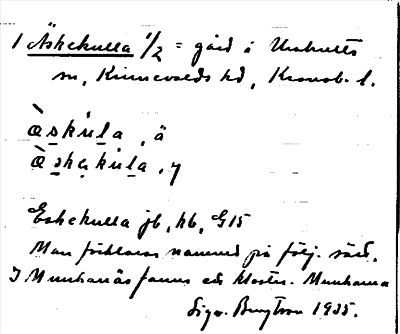 1 Äskekulla 1/2 = gård i Urshults
sn, Kinnevalds hd, Kronob. l.
æ̀skúla, ä
æ̀skekúla, y
Eskekulla jb, kb, G15
Man förklarar namnet på följ. sätt.
I Munkanäs fanns ett kloster. Munkarna
Sigv. Bengtson 1935.